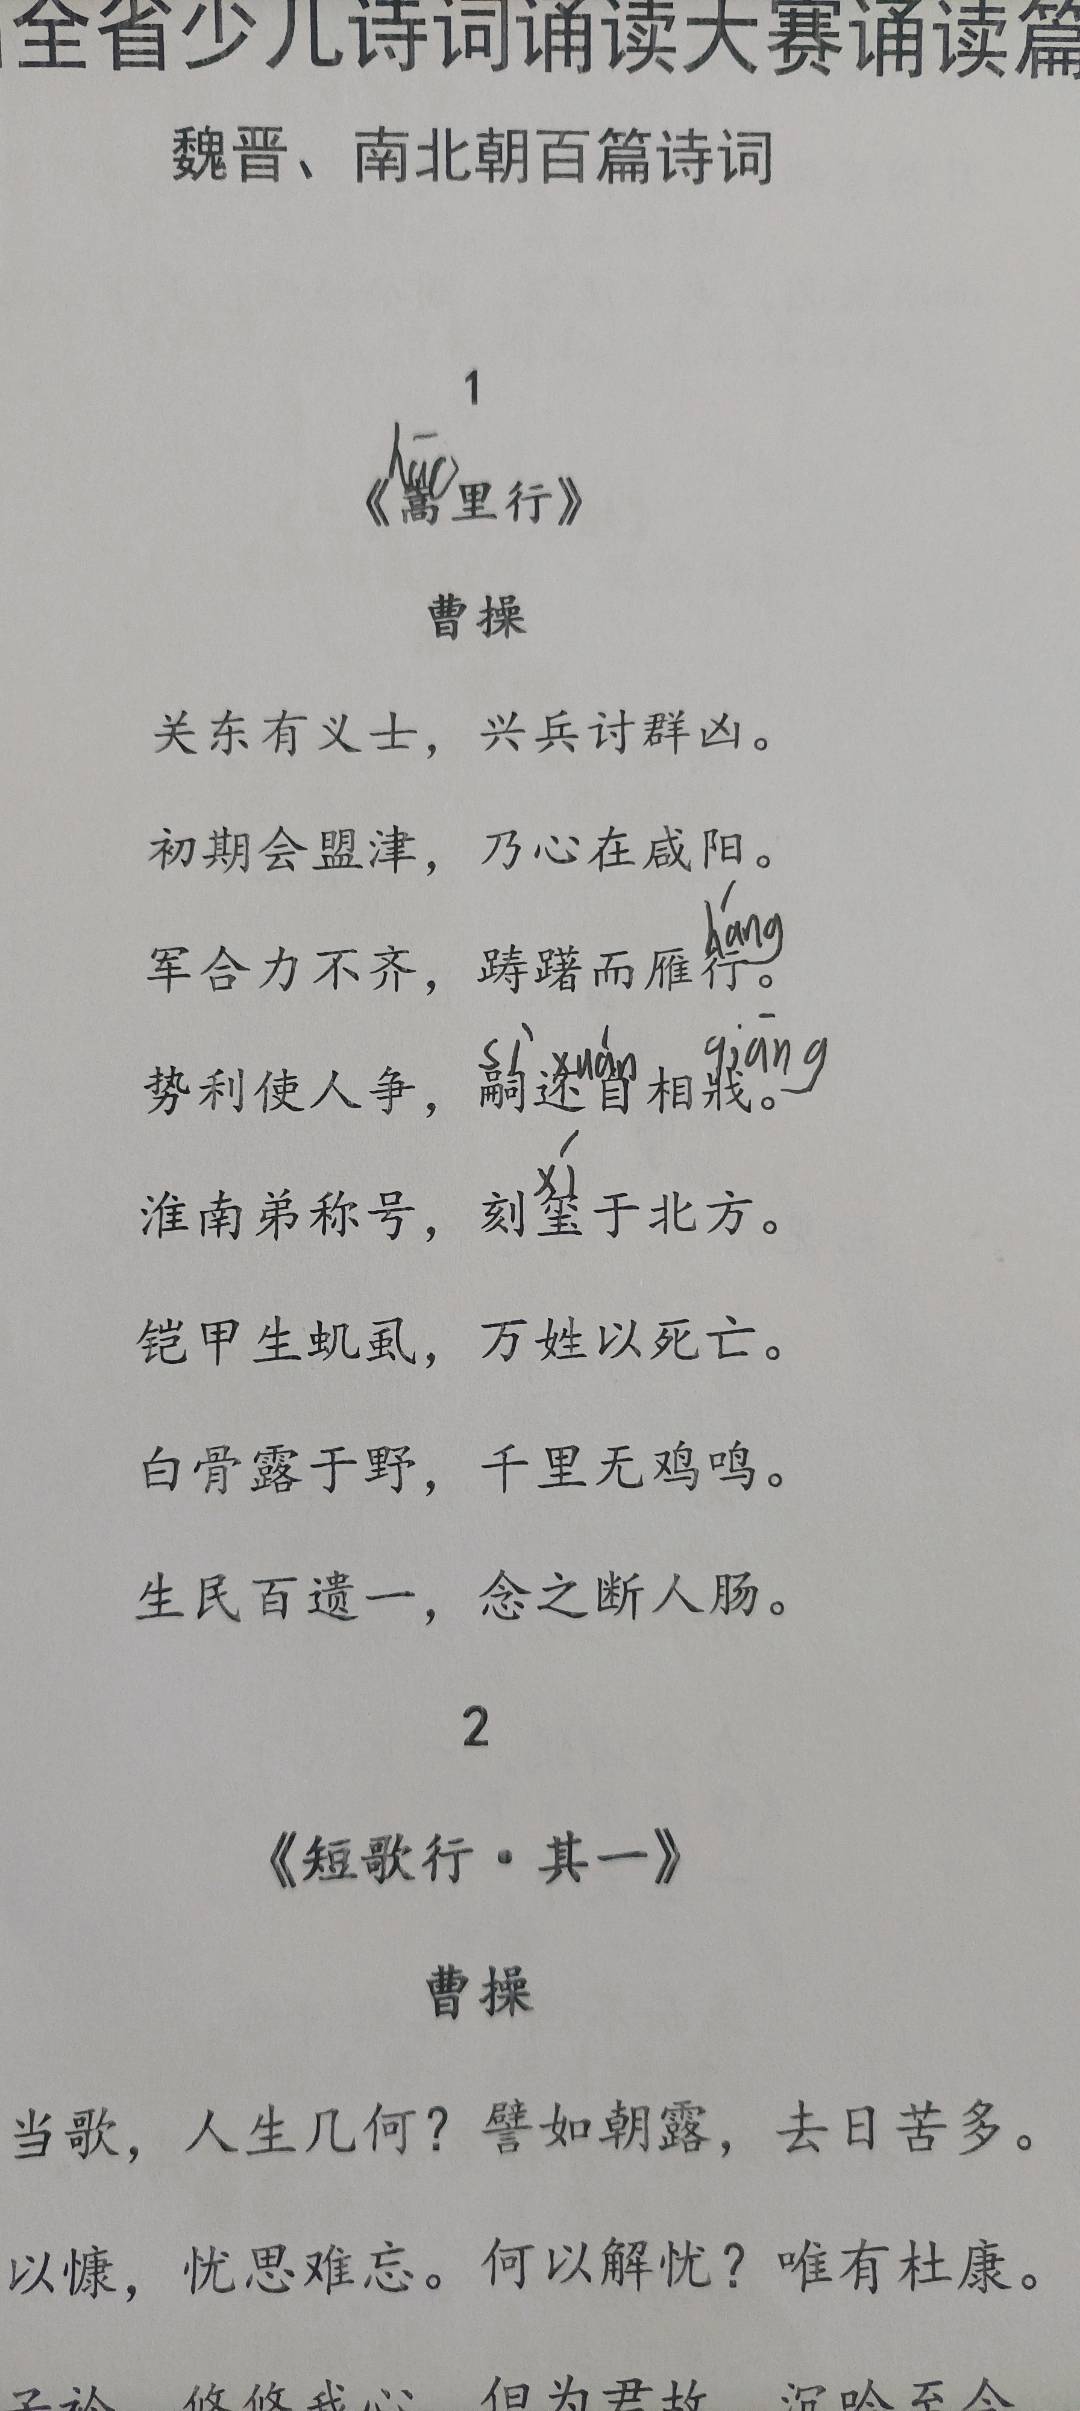 全省少儿诗词诵读大赛诵读篇
魏晋、南北朝百篇诗词
1
hāo
《蒿里行》
曹操
关东有义士，兴兵讨群凶。
初期会盟津，乃心在咸阳。
háng
军合力不齐，踌躇而雁行。
sì xuán qiāng
势利使人争，嗣还自相戕。
xí
淮南弟称号，刻玺于北方。
铠甲生虮虱，万姓以死亡。
白骨露于野，千里无鸡鸣。
生民百遗一，念之断人肠。
2
《短歌行·其一》
曹操
当歌，人生几何？譬如朝露，去日苦多。
以慷，忧思难忘。何以解忧？唯有杜康。
子衿，悠悠我心。但为君故，沉吟至今